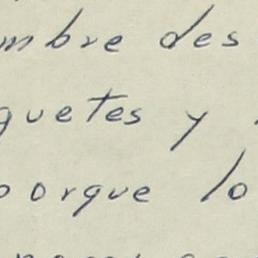 mbre des
quetes y
porque lo